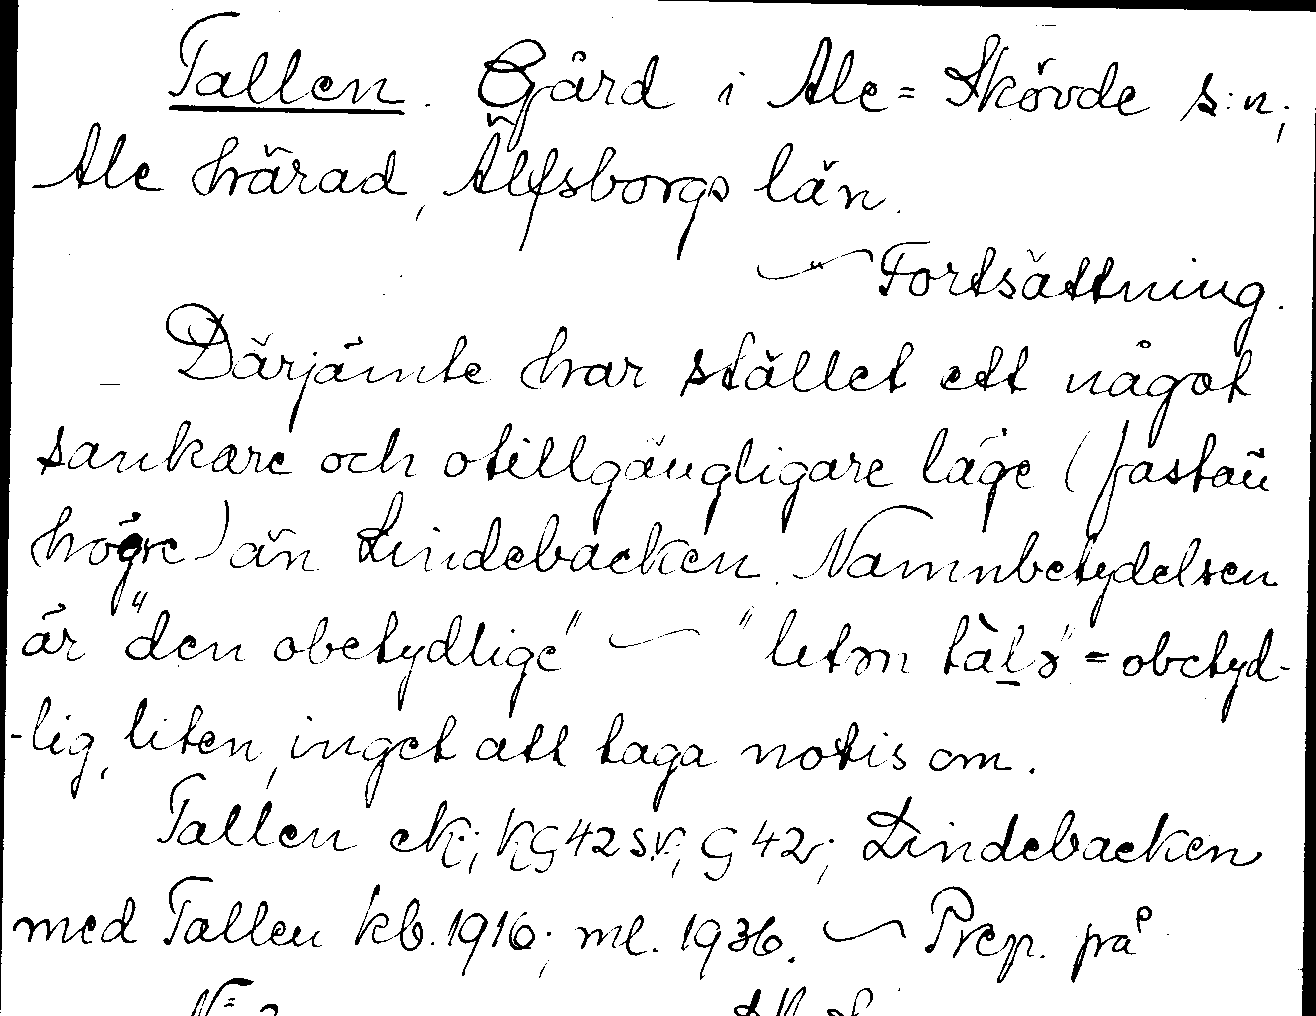 Tallen. Gård i Ale=Skövde s:n;
Ale härad, Älfsborgs län.
— Fortsättning.
Därjämte har stället ett något
sankare och otillgängligare läge (fastän
högre) än Lindebacken. Namnbetydelsen
är "den obetydlige" — "letǝn tàlǝ" = obetyd-
-lig, liten, inget att taga notis om.
Tallen ek; KG42sv; G42v; Lindebacken
med Tallen kb. 1916; ml. 1936. — Prep. på